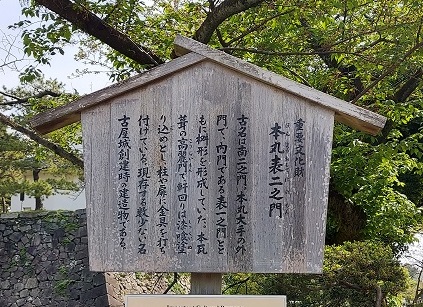 重要文化財
本丸表二之門
古名は南二之門。本丸大手の外
門で、内門である表一之門とと
もに枡形を形成していた。本瓦
葺の高麗門で軒回りは漆喰塗
り込めとし、柱や扉に金具を打ち
付けている。現存する数少ない名
古屋城創建時の建造物である。